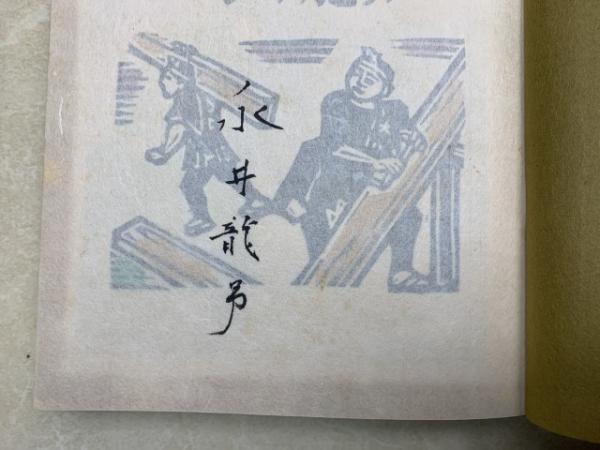 永井龍男